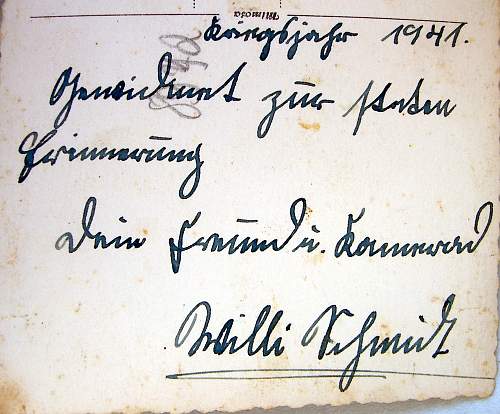 Mimosa
Kriegsjahr 1941.
Gewidmet zur steten
Erinnerung
Dein Freund u. Kamerad
Willi Schmidt